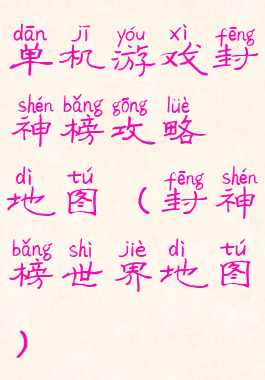 dān jī yóu xì fēng
单机游戏封
shén bǎng gōng lüè
神榜攻略
dì tú fēng shén
地图(封神
bǎng shì jiè dì tú
榜世界地图
)